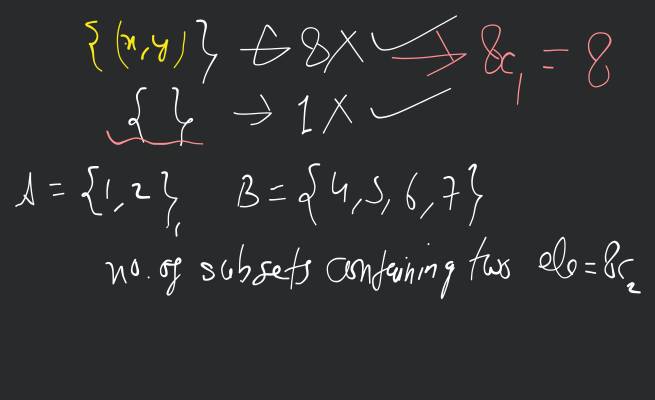 {(x,y)} → 8X ✓ → 8c₁ = 8
{ } → 1X ✓
A = {1,2}, B = {4,5,6,7}
no. of subsets containing two ele = 8c₂